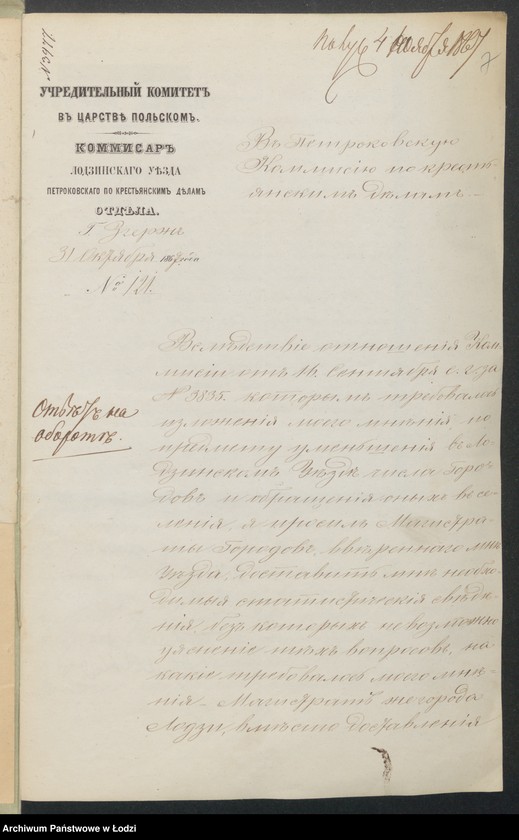 №3977
Получ 4 Ноября 1867
7
УЧРЕДИТЕЛЬНЫЙ КОМИТЕТЪ
ВЪ ЦАРСТВѢ ПОЛЬСКОМЪ.
КОММИСАРЪ
ЛОДЗИНСКАГО УѢЗДА
ПЕТРОКОВСКАГО ПО КРЕСТЬЯНСКИМЪ ДѢЛАМЪ
ОТДѢЛА.
Г. Згержъ
31 Октября 1867 года
№ 121.
Въ Петроковскую
Коммисію по кресть-
янскимъ дѣламъ
Вслѣдствіе отношенія Ком-
мисіи отъ 16 Сентября с. г. за
№ 3835. которымъ требовалось
изложенія моего мнѣнія по
предмету уменьшенія въ Ло-
дзинскомъ Уѣздѣ числа Горо-
довъ и обращенія оныхъ въ се-
ленія, я просилъ Магистра-
ты Городовъ, ввѣреннаго мнѣ
Уѣзда, доставить мнѣ необхо-
димыя статистическія свѣдѣ-
нія, безъ которыхъ невозможно
уясненіе тѣхъ вопросовъ, на
какіе требовалось моего мнѣ-
нія. Магистратъ же города
Лодзи, вмѣсто доставленія
Отвѣтъ на
оборотѣ.
Archiwum Państwowe w Łodzi